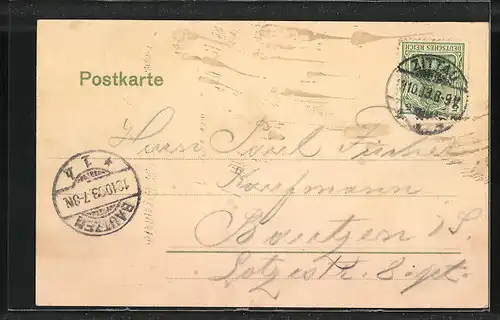 DEUTSCHES REICH
ZITTAU
10.03.8-9N
Postkarte
Herrn Paul Fischer
Kaufmann
Bautzen i/S.
Lotzestr. 8. pt.
* 1. b
12.10.03.7-8N
BAUTZEN